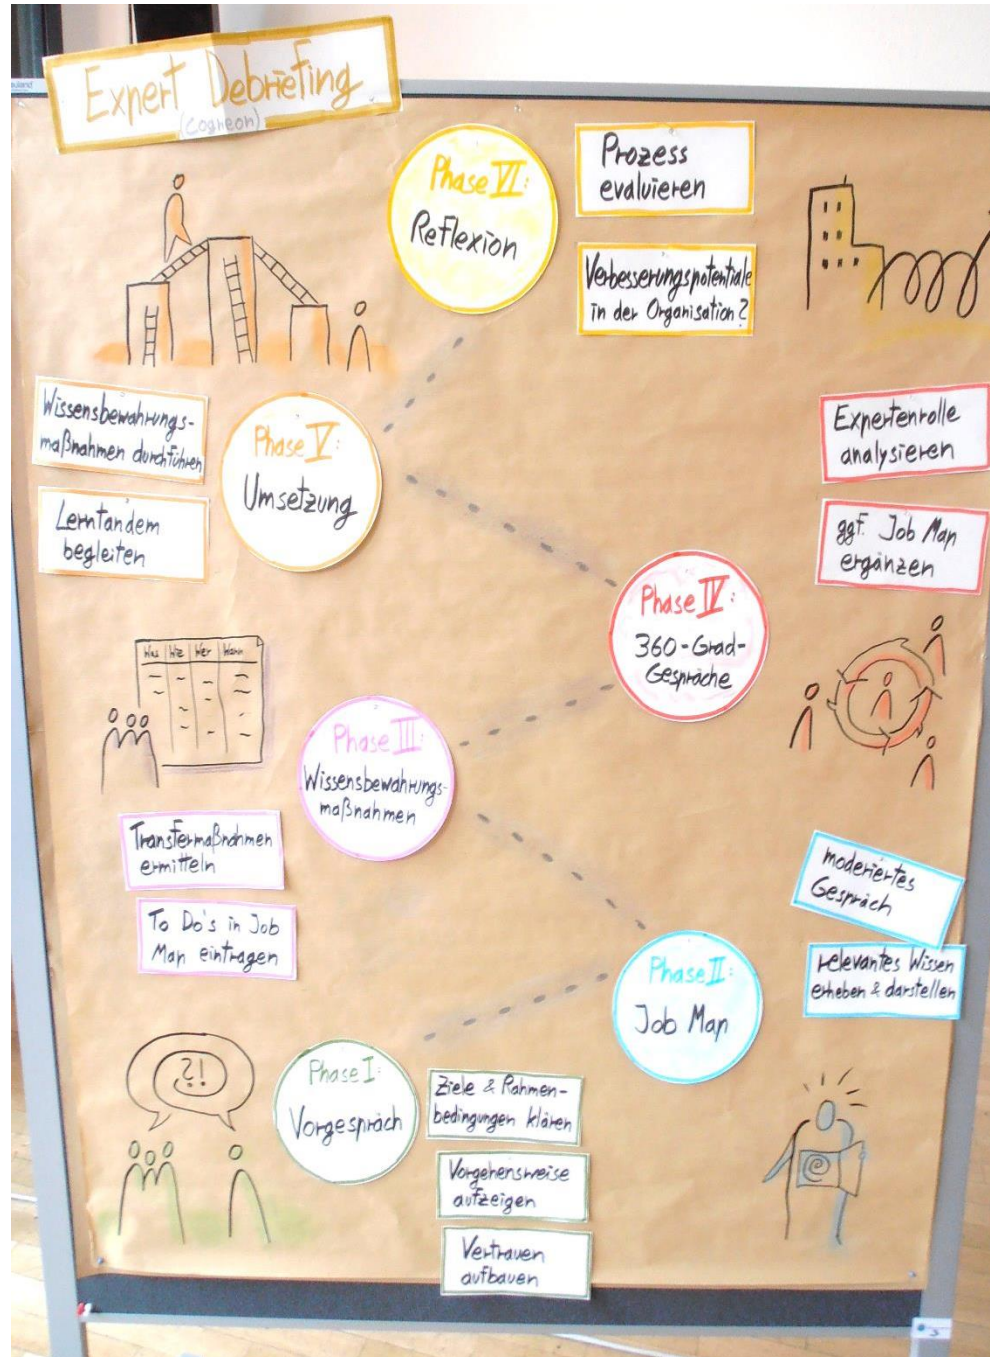 Expert Debriefing
(Cogneon)
Phase VI:
Reflexion
Prozess
evaluieren
Verbesserungspotentiale
in der Organisation?
Wissensbewahrungs-
maßnahmen durchführen
Lerntandem
begleiten
Phase V:
Umsetzung
Expertenrolle
analysieren
ggf. Job Map
ergänzen
Phase IV:
360-Grad-
Gespräche
Was Wie Wer Wann
Phase III:
Wissensbewahrungs-
maßnahmen
Transfermaßnahmen
ermitteln
To Do's in Job
Map eintragen
moderiertes
Gespräch
relevantes Wissen
erheben & darstellen
Phase II:
Job Map
?!
Phase I:
Vorgespräch
Ziele & Rahmen-
bedingungen klären
Vorgehensweise
aufzeigen
Vertrauen
aufbauen